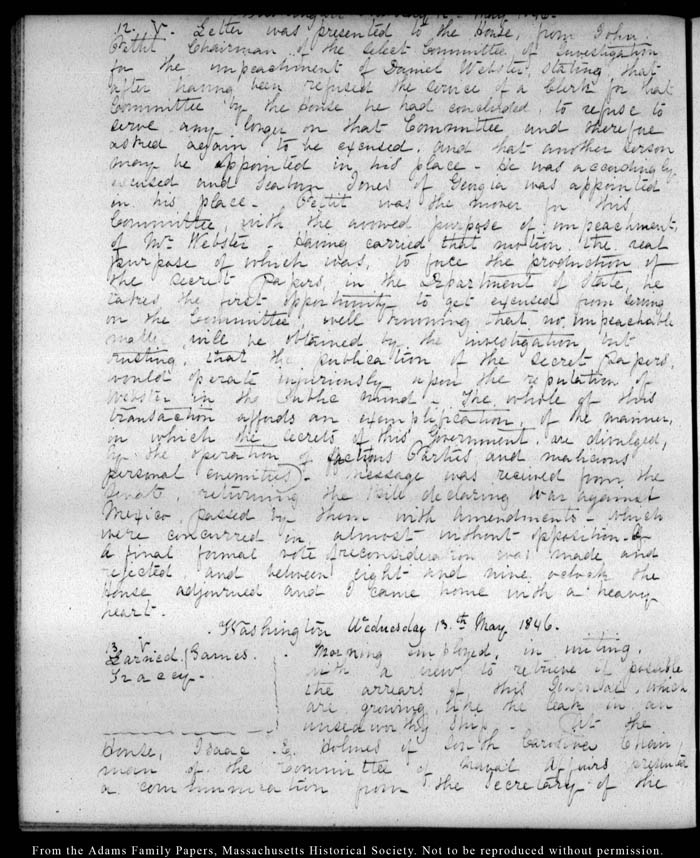 12. V. Letter was presented to the House, from John
Pettit Chairman of the Select Committee of Investigation
for the impeachment of Daniel Webster, stating that
after having been refused the service of a Clerk for that
Committee by the House he had concluded, to refuse to
serve any longer on that Committee and therefore
asked again to be excused, and that another person
may be appointed in his place - He was accordingly
excused and Seaborn Jones of Georgia was appointed
in his place - Pettit was the mover for this
Committee, with the avowed purpose of impeachment,
of Mr Webster - Having carried that motion, the real
purpose of which was, to force the production of
the secret papers, in the Department of State, he
takes the first opportunity to get excused from serving
on the Committee, well knowing that no impeachable
matter will be obtained by the investigation but
trusting, that the publication of the secret papers,
would operate injuriously upon the reputation of
Webster in the Public mind - The whole of this
transaction affords an exemplification, of the manner,
in which the secrets of this Government, are divulged,
by the operation of factious Parties and malicious
personal enmities - A message was received from the
Senate, returning the Bill declaring War against
Mexico, passed by them with amendments - which
were concurred in, almost without opposition -
a final formal vote of reconsideration was made and
rejected, and between eight and nine o'clock the
House adjourned and I came home with a heavy
heart.
Washington Wednesday 13.th May 1846.
13. V.
Larned. James.
Tracey.
Morning employed, in writing,
with a view to retrieve if possible
the arrears of this Journal, which
are growing, like the leak in an
unseaworthy ship - At the
House, Isaac E. Holmes of South Carolina Chair
man of the Committee of Naval Affairs presented
a communication from the Secretary of the
From the Adams Family Papers, Massachusetts Historical Society. Not to be reproduced without permission.